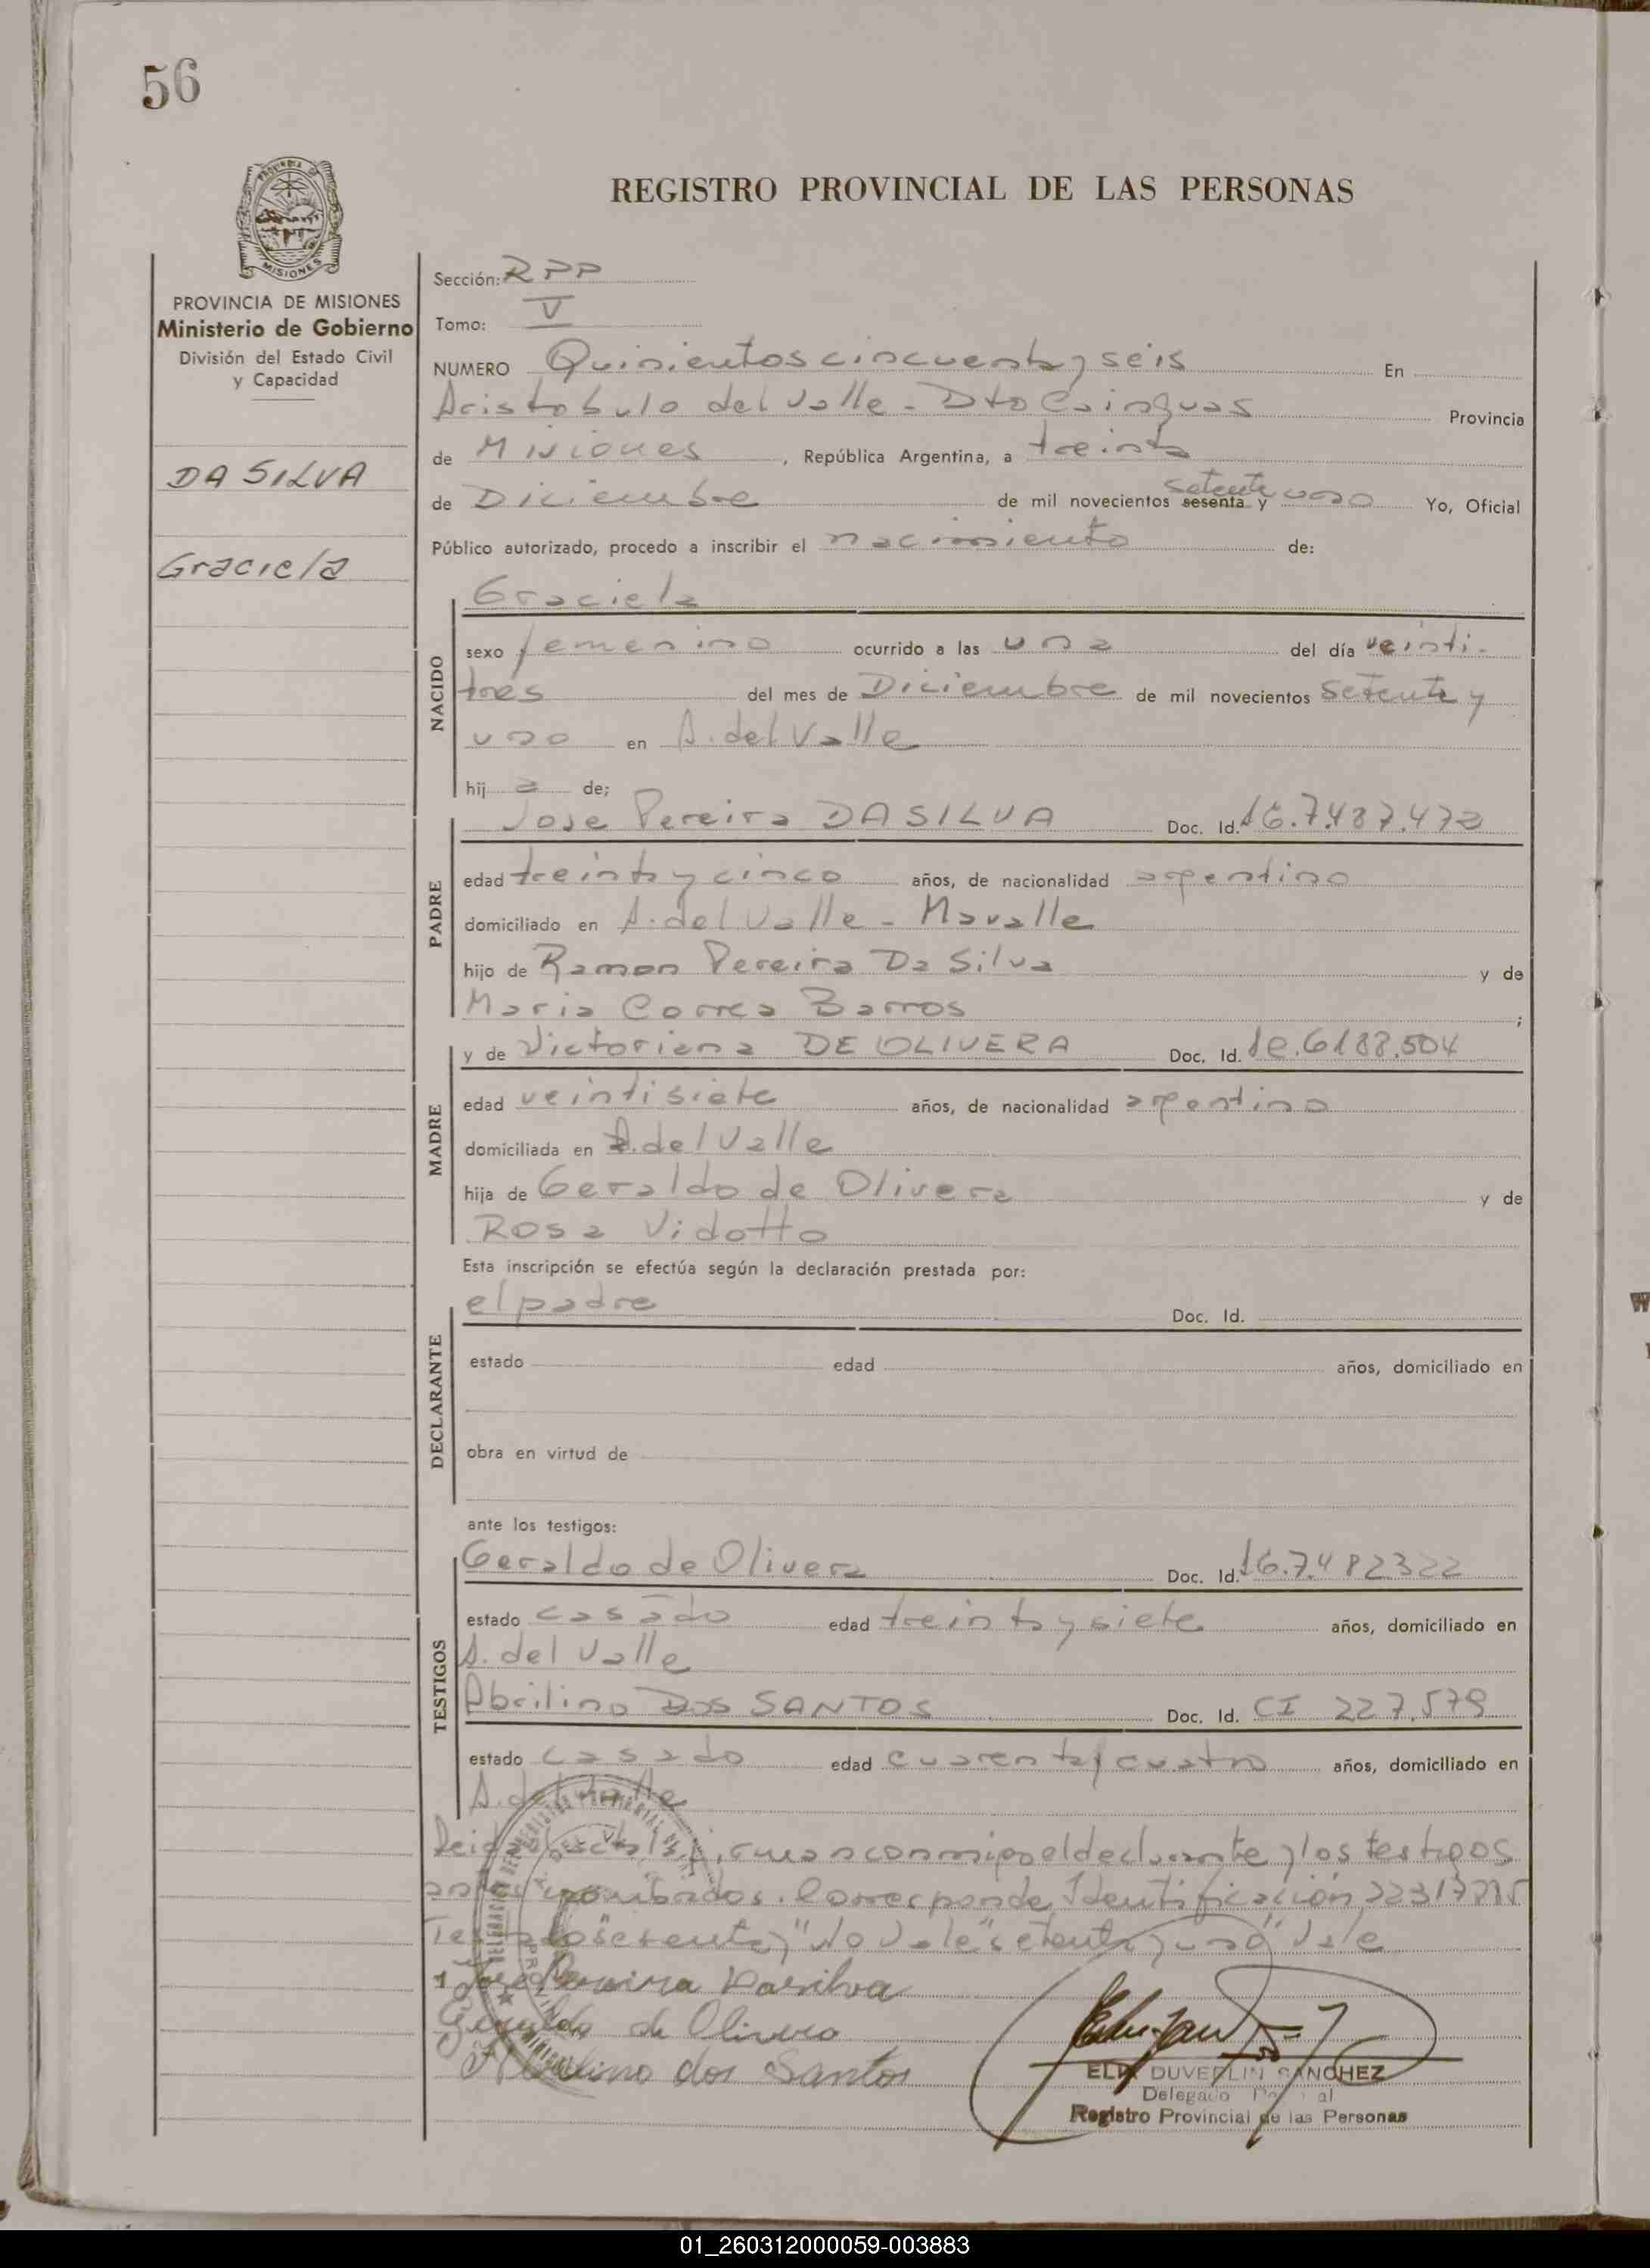 56
PROVINCIA DE
MISIONES
PROVINCIA DE MISIONES
Ministerio de Gobierno
División del Estado Civil
y Capacidad
DA SILVA
Graciela
REGISTRO PROVINCIAL DE LAS PERSONAS
Sección: RPP
Tomo: V
NUMERO Quinientos cincuenta y seis En
Aristobulo del Valle - Dto Cainguas Provincia
de Misiones, República Argentina, a treinta
de Diciembre de mil novecientos sesenta y setenta y uno Yo, Oficial
Público autorizado, procedo a inscribir el nacimiento de:
NACIDO
Graciela
sexo femenino ocurrido a las una del día veinti-
tres del mes de Diciembre de mil novecientos setenta y
uno en A. del Valle
hij a de;
PADRE
Jose Pereira DA SILVA Doc. Id. 16.7.487.472
edad treinta y cinco años, de nacionalidad argentino
domiciliado en A. del Valle - Mavalle
hijo de Ramon Pereira Da Silva y de
Maria Correa Barros ;
MADRE
y de Victoriana DE OLIVERA Doc. Id. lc. 6188.504
edad veintisiete años, de nacionalidad argentino
domiciliada en A. del Valle
hija de Geraldo de Olivera y de
Rosa Vidotto
Esta inscripción se efectúa según la declaración prestada por:
DECLARANTE
el padre Doc. Id.
estado edad años, domiciliado en
obra en virtud de
ante los testigos:
TESTIGOS
Geraldo de Olivera Doc. Id. 16.7.482322
estado casado edad treinta y siete años, domiciliado en
A. del Valle
Abrilino DOS SANTOS Doc. Id. CI 227.579
estado casado edad cuarenta y cuatro años, domiciliado en
A. del Valle
Leida el acta la firman conmigo el declarante y los testigos
antes nombrados. Corresponde Identificación 22317215
Testado "sesenta y" No Vale "setenta y uno" Vale
1 Jose Pereira Dasilva
Geraldo de Olivera
dos Santos
ELVA DUVERLIN SANCHEZ
Delegado
Registro Provincial de las Personas
01_260312000059-003883